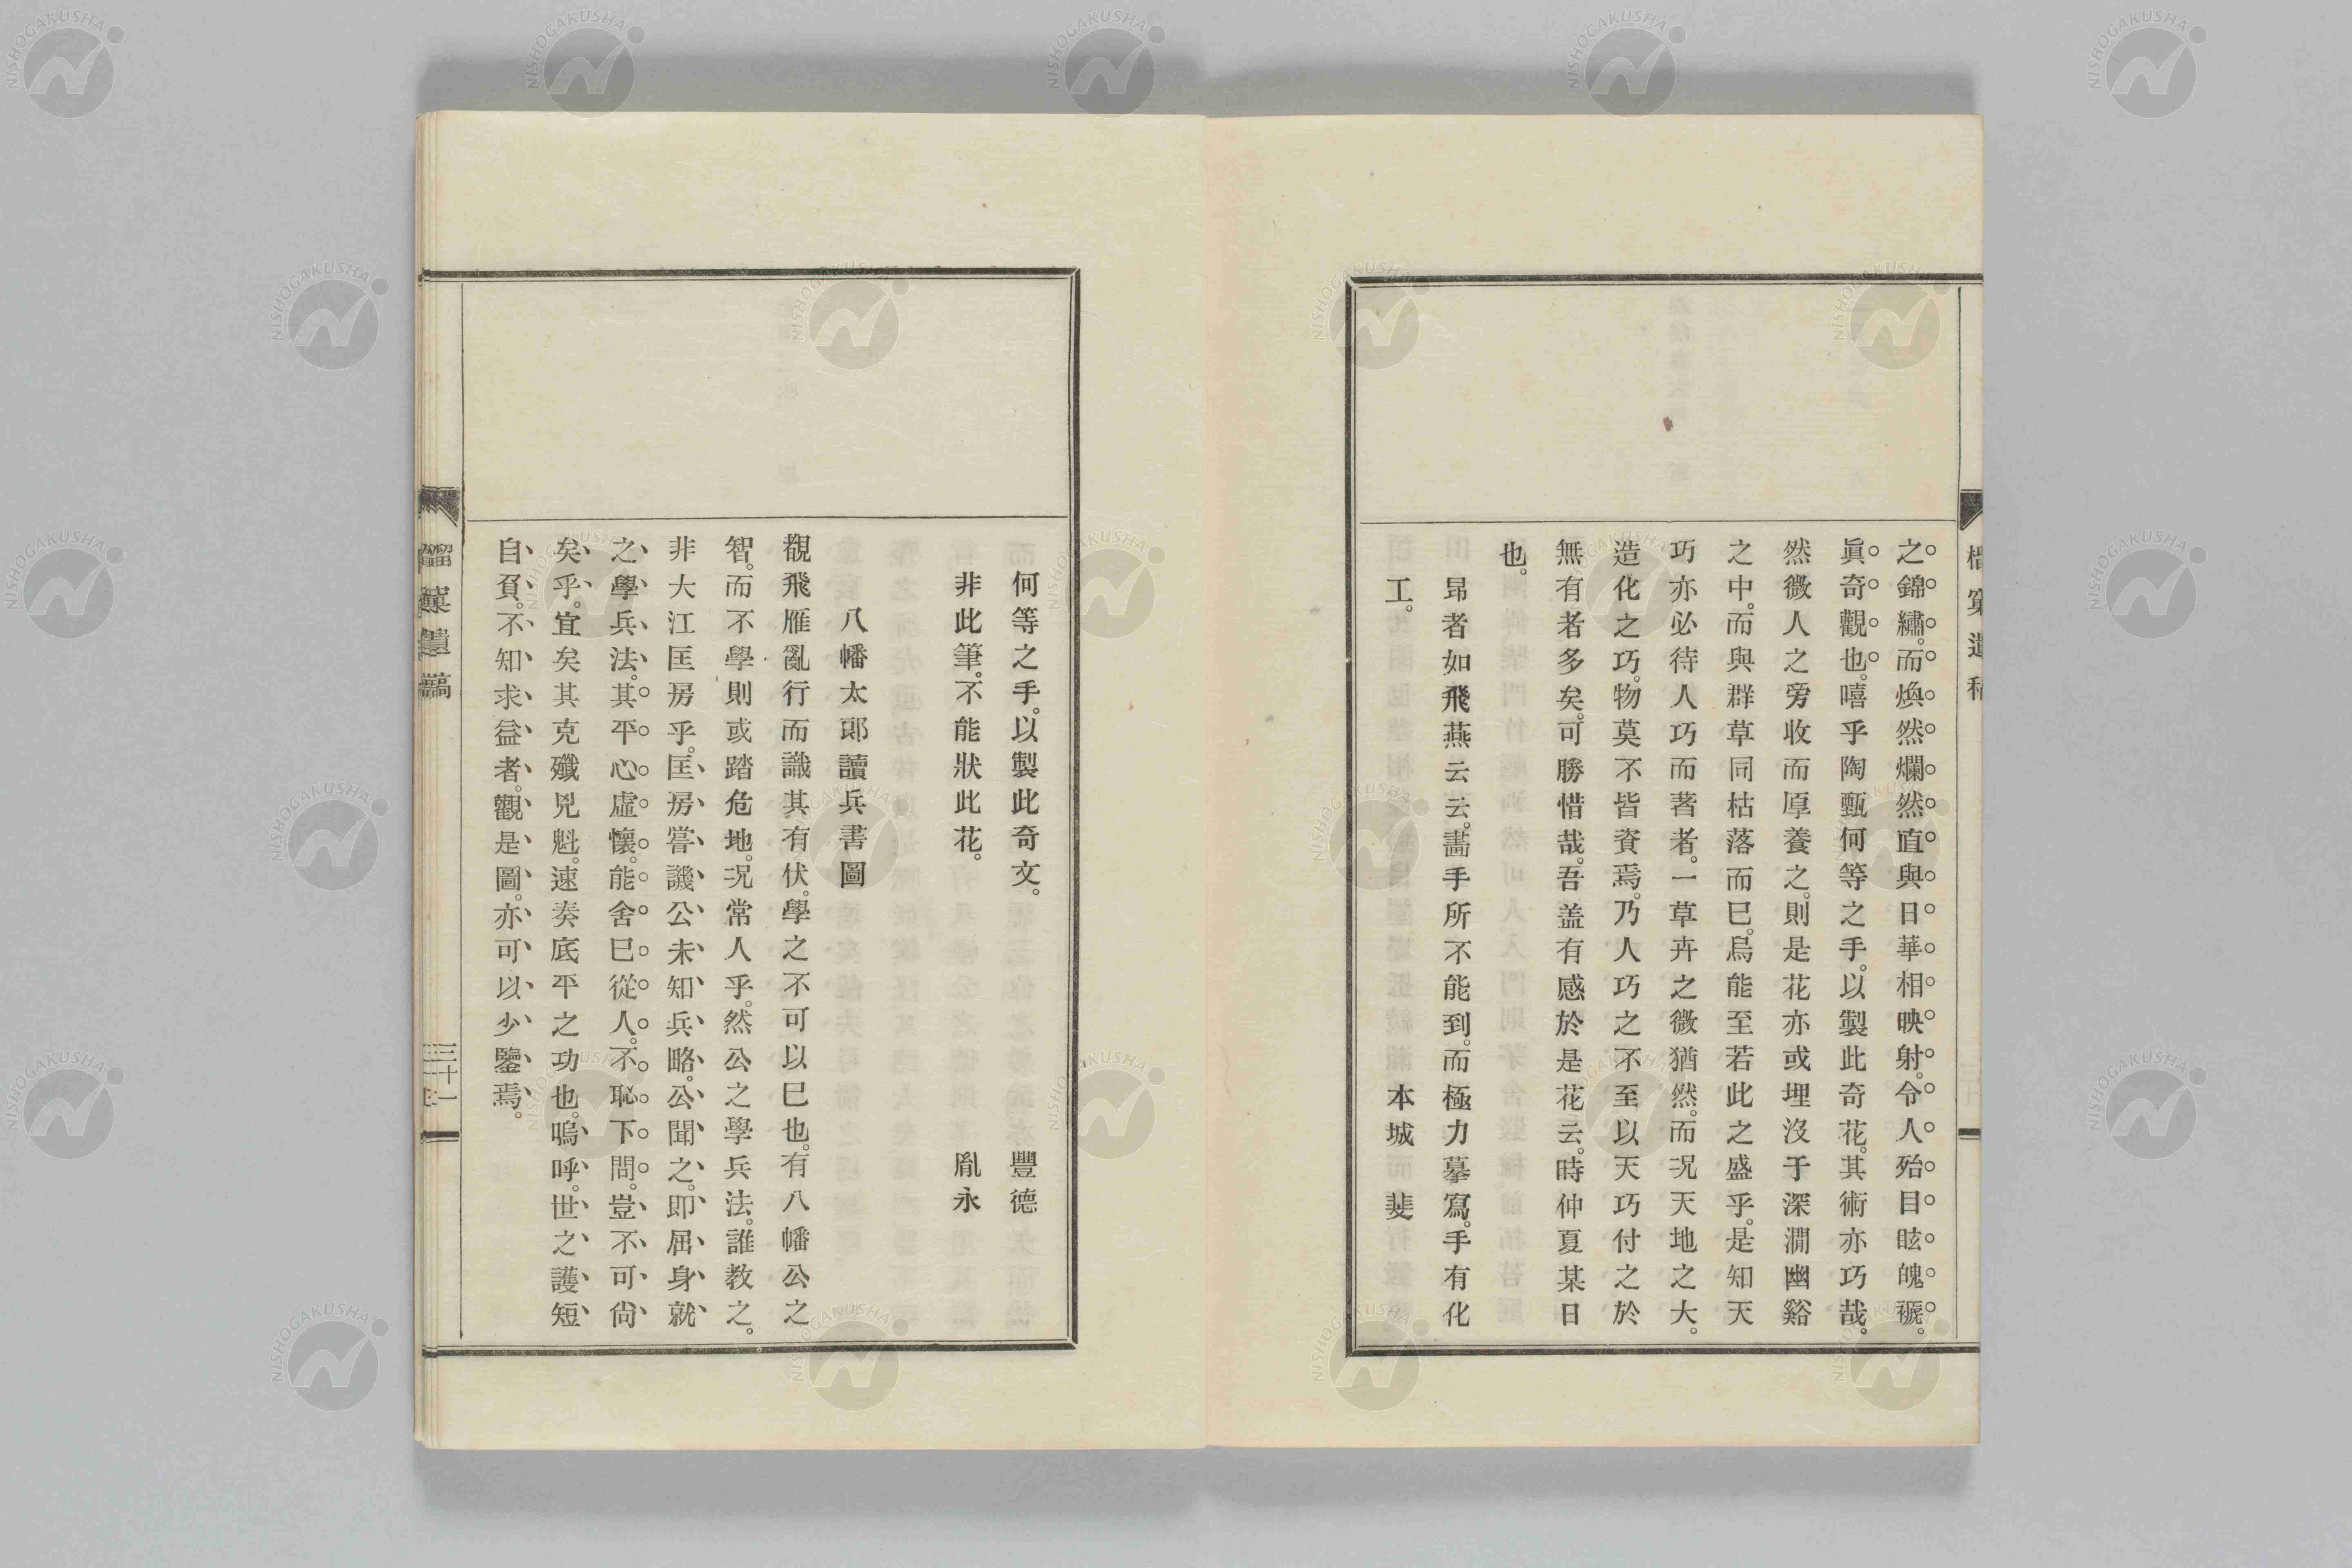 之錦繡。而煥然爛然直與日華相映射。令人殆目眩魄褫。
眞奇觀也。嘻乎陶甄何等之手。以製此奇花。其術亦巧哉。
然微人之旁收而厚養之。則是花亦或埋沒于深澗幽谿
之中。而與群草同枯落而已。烏能至若此之盛乎。是知天
巧亦必待人巧而著者。一草卉之微猶然。而况天地之大。
造化之巧。物莫不皆資焉。乃人巧之不至以天巧付之於
無有者多矣。可勝惜哉。吾盖有感於是花云。時仲夏某日
也。
昻者如飛燕云云。畵手所不能到。而極力摹寫。手有化
工。 本城 斐
何等之手。以製此奇文。 豐德
非此筆。不能狀此花。 胤永
八幡太郎讀兵書圖
觀飛雁亂行而識其有伏。學之不可以已也。有八幡公之
智。而不學則或踏危地。况常人乎。然公之學兵法。誰敎之。
非大江匡房乎。匡房嘗譏公未知兵略。公聞之。即屈身就
之學兵法。其平心虛懷。能舍已從人。不恥下問。豈不可尙
矣乎。宜矣其克殲兇魁。速奏底平之功也。嗚呼。世之護短
自負。不知求益者。觀是圖。亦可以少鑒焉。
三十一
NISHOGAKUSHA